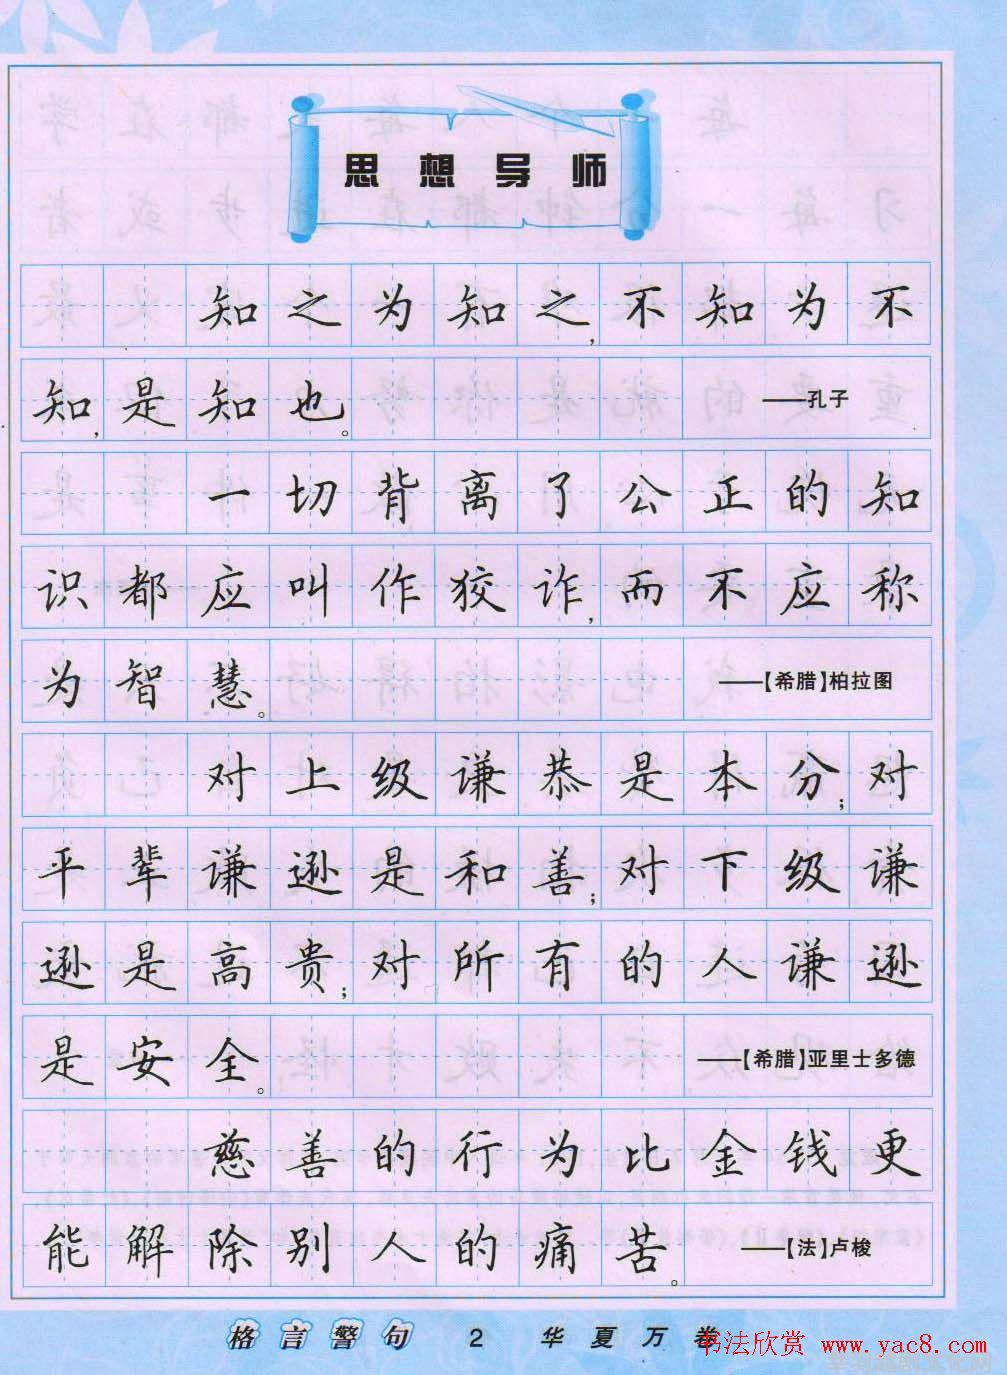 思想导师
知之为知之,不知为不
知,是知也。 ——孔子
一切背离了公正的知
识都应叫作狡诈,而不应称
为智慧。 ——【希腊】柏拉图
对上级谦恭是本分;对
平辈谦逊是和善;对下级谦
逊是高贵;对所有的人谦逊
是安全。 ——【希腊】亚里士多德
慈善的行为比金钱更
能解除别人的痛苦。 ——【法】卢梭
格言警句 2 华夏万卷
书法欣赏 www.yac8.com